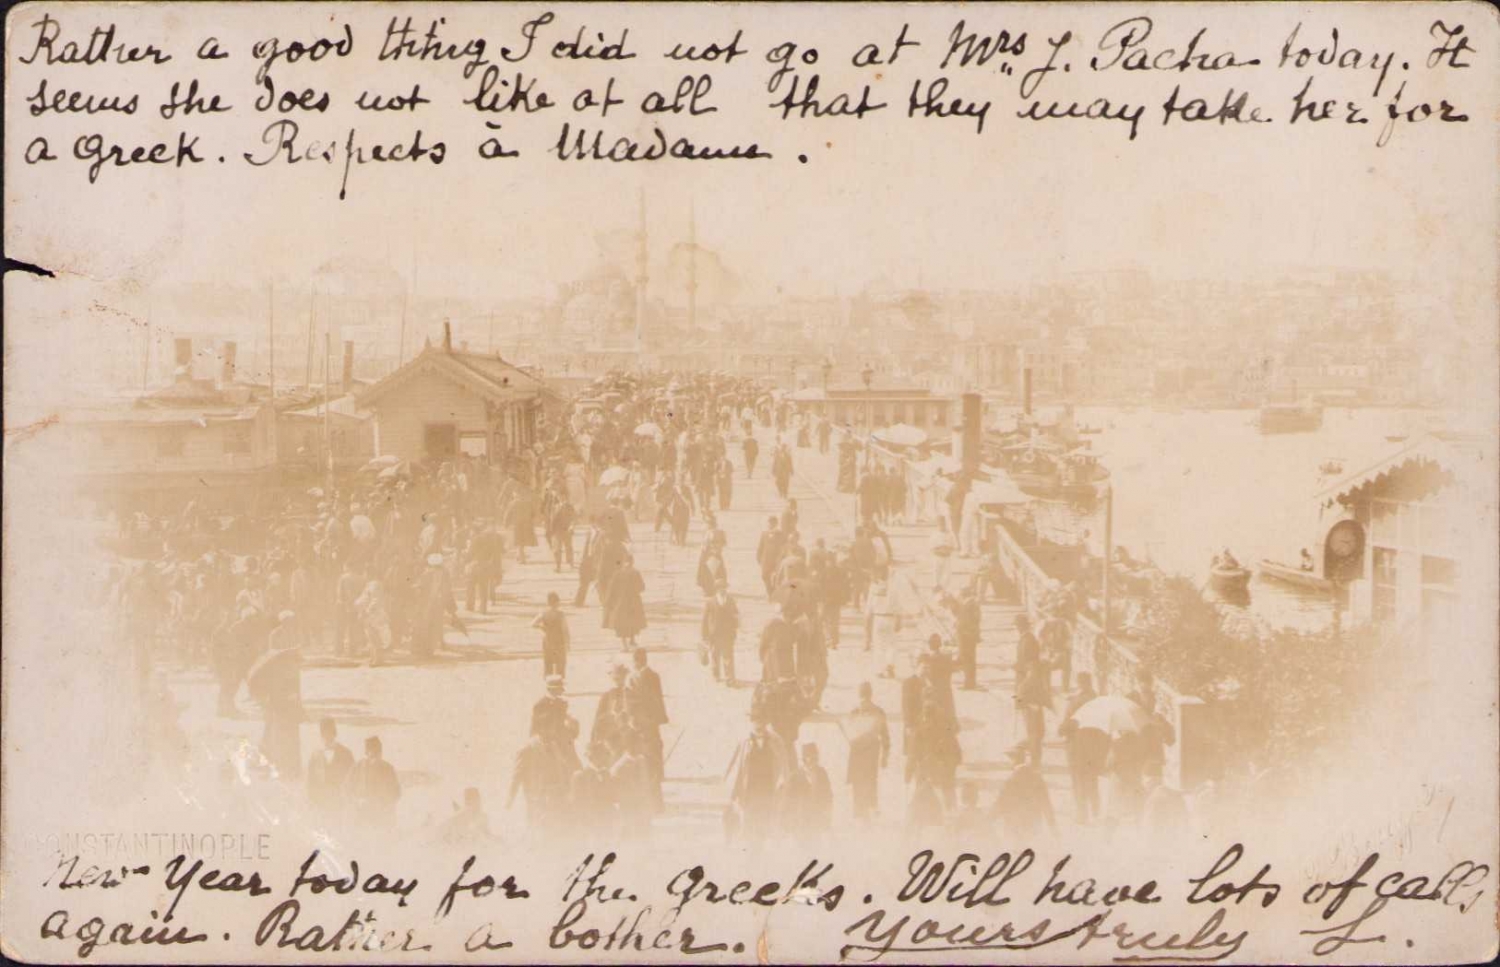 Rather a good thing I did not go at Mrs J. Pacha today. It
seems she does not like at all that they may take her for
a Greek. Respects à Madame.
CONSTANTINOPLE
New-Year today for the Greeks. Will have lots of calls
again. Rather a bother. Yours truly L.